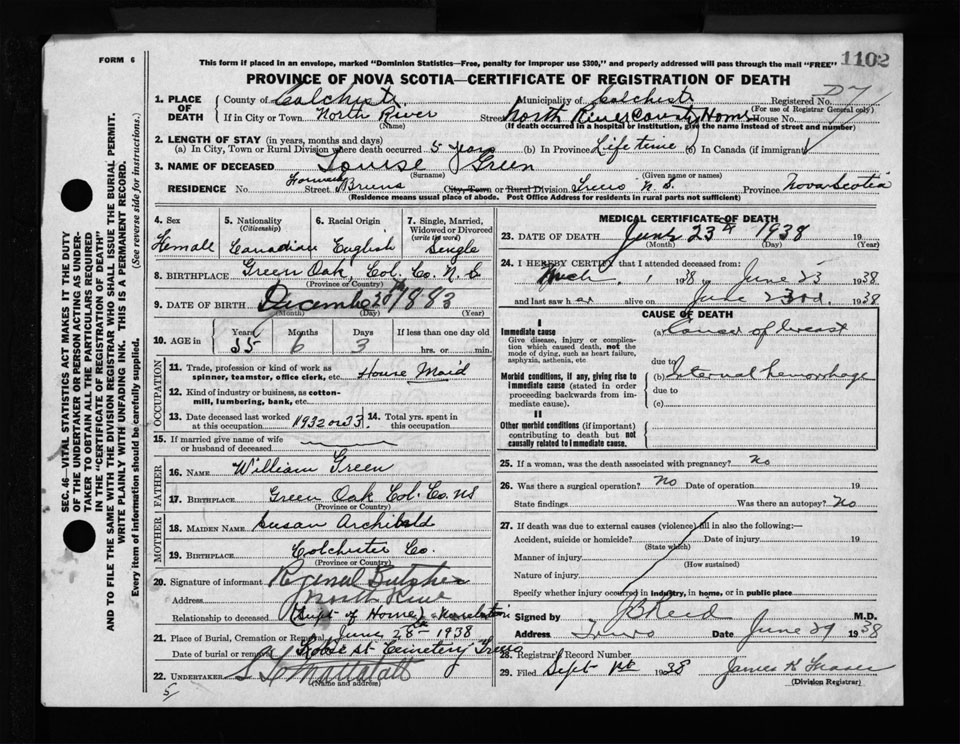 FORM 6
This form if placed in an envelope, marked "Dominion Statistics—Free, penalty for improper use $300," and properly addressed will pass through the mail "FREE"
1102
PROVINCE OF NOVA SCOTIA—CERTIFICATE OF REGISTRATION OF DEATH
SEC. 46—VITAL STATISTICS ACT MAKES IT THE DUTY
OF THE UNDERTAKER OR PERSON ACTING AS UNDER-
TAKER TO OBTAIN ALL THE PARTICULARS REQUIRED
IN THE "CERTIFICATE OF REGISTRATION OF DEATH"
AND TO FILE THE SAME WITH THE DIVISION REGISTRAR WHO SHALL ISSUE THE BURIAL PERMIT.
WRITE PLAINLY WITH UNFADING INK. THIS IS A PERMANENT RECORD.
Every item of Information should be carefully supplied. (See reverse side for instructions.)
1. PLACE OF DEATH
County of Colchester Municipality of Colchester Registered No.
(For use of Registrar General only)
If in City or Town North River Street North River County Home House No.
(Name) (If death occurred in a hospital or institution, give the name instead of street and number)
2. LENGTH OF STAY (in years, months and days)
(a) In City, Town or Rural Division where death occurred 5 years (b) In Province Life time (c) In Canada (if immigrant)
3. NAME OF DECEASED Louise Green
(Surname) (Given name or names)
RESIDENCE No. Street City, Town or Rural Division Truro N.S. Province Nova Scotia
(Residence means usual place of abode. Post Office Address for residents in rural parts not sufficient)
4. Sex
Female
5. Nationality
(Citizenship)
Canadian
6. Racial Origin
English
7. Single, Married,
Widowed or Divorced
(write the word)
Single
8. BIRTHPLACE Green Oak, Col. Co. N.S
(Province or Country)
9. DATE OF BIRTH December 20th 1883
(Month) (Day) (Year)
10. AGE in
Years Months Days If less than one day old
55 6 3 hrs. or min.
OCCUPATION
11. Trade, profession or kind of work as
spinner, teamster, office clerk, etc. House Maid
12. Kind of industry or business, as cotton-
mill, lumbering, bank, etc.
13. Date deceased last worked
at this occupation 1932 or 33
14. Total yrs. spent in
this occupation
15. If married give name of wife
or husband of deceased
FATHER
16. NAME William Green
17. BIRTHPLACE Green Oak Col. Co. NS
(Province or Country)
MOTHER
18. MAIDEN NAME Susan Archibald
19. BIRTHPLACE Colchester Co.
(Province or Country)
20. Signature of informant Butcher
Address North River
Relationship to deceased (Supt of Home)
21. Place of Burial, Cremation or Removal June 28th 1938
Date of burial or removal Robie St Cemetery Truro
22. UNDERTAKER
(Name and Address)
5
MEDICAL CERTIFICATE OF DEATH
23. DATE OF DEATH June 23rd 1938 19
(Month) (Day) (Year)
24. I HEREBY CERTIFY that I attended deceased from:
March 1 1938 June 23 1938
and last saw her alive on June 23rd 1938
CAUSE OF DEATH
I
Immediate cause
Give disease, injury or complica-
tion which caused death, not the
mode of dying, such as heart failure,
asphyxia, asthenia, etc
(a) Cancer of breast
due to
Morbid conditions, if any, giving rise to
immediate cause (stated in order
proceeding backwards from im-
mediate cause).
(b) Internal hemorrhage
due to
(c)
II
Other morbid conditions (if important)
contributing to death but not
causally related to immediate cause.
25. If a woman, was the death associated with pregnancy? No
26. Was there a surgical operation? No Date of operation 19
State findings Was there an autopsy? No
27. If death was due to external causes (violence) fill in also the following:—
Accident, suicide or homicide? Date of injury 19
(State which)
Manner of injury
(How sustained)
Nature of injury
Specify whether injury occurred in industry, in home, or in public place
Signed by Reid M.D.
Address Truro Date June 29 1938
28. Registrars Record Number
29. Filed Sept 1st 1938 James K Fraser
(Division Registrar)